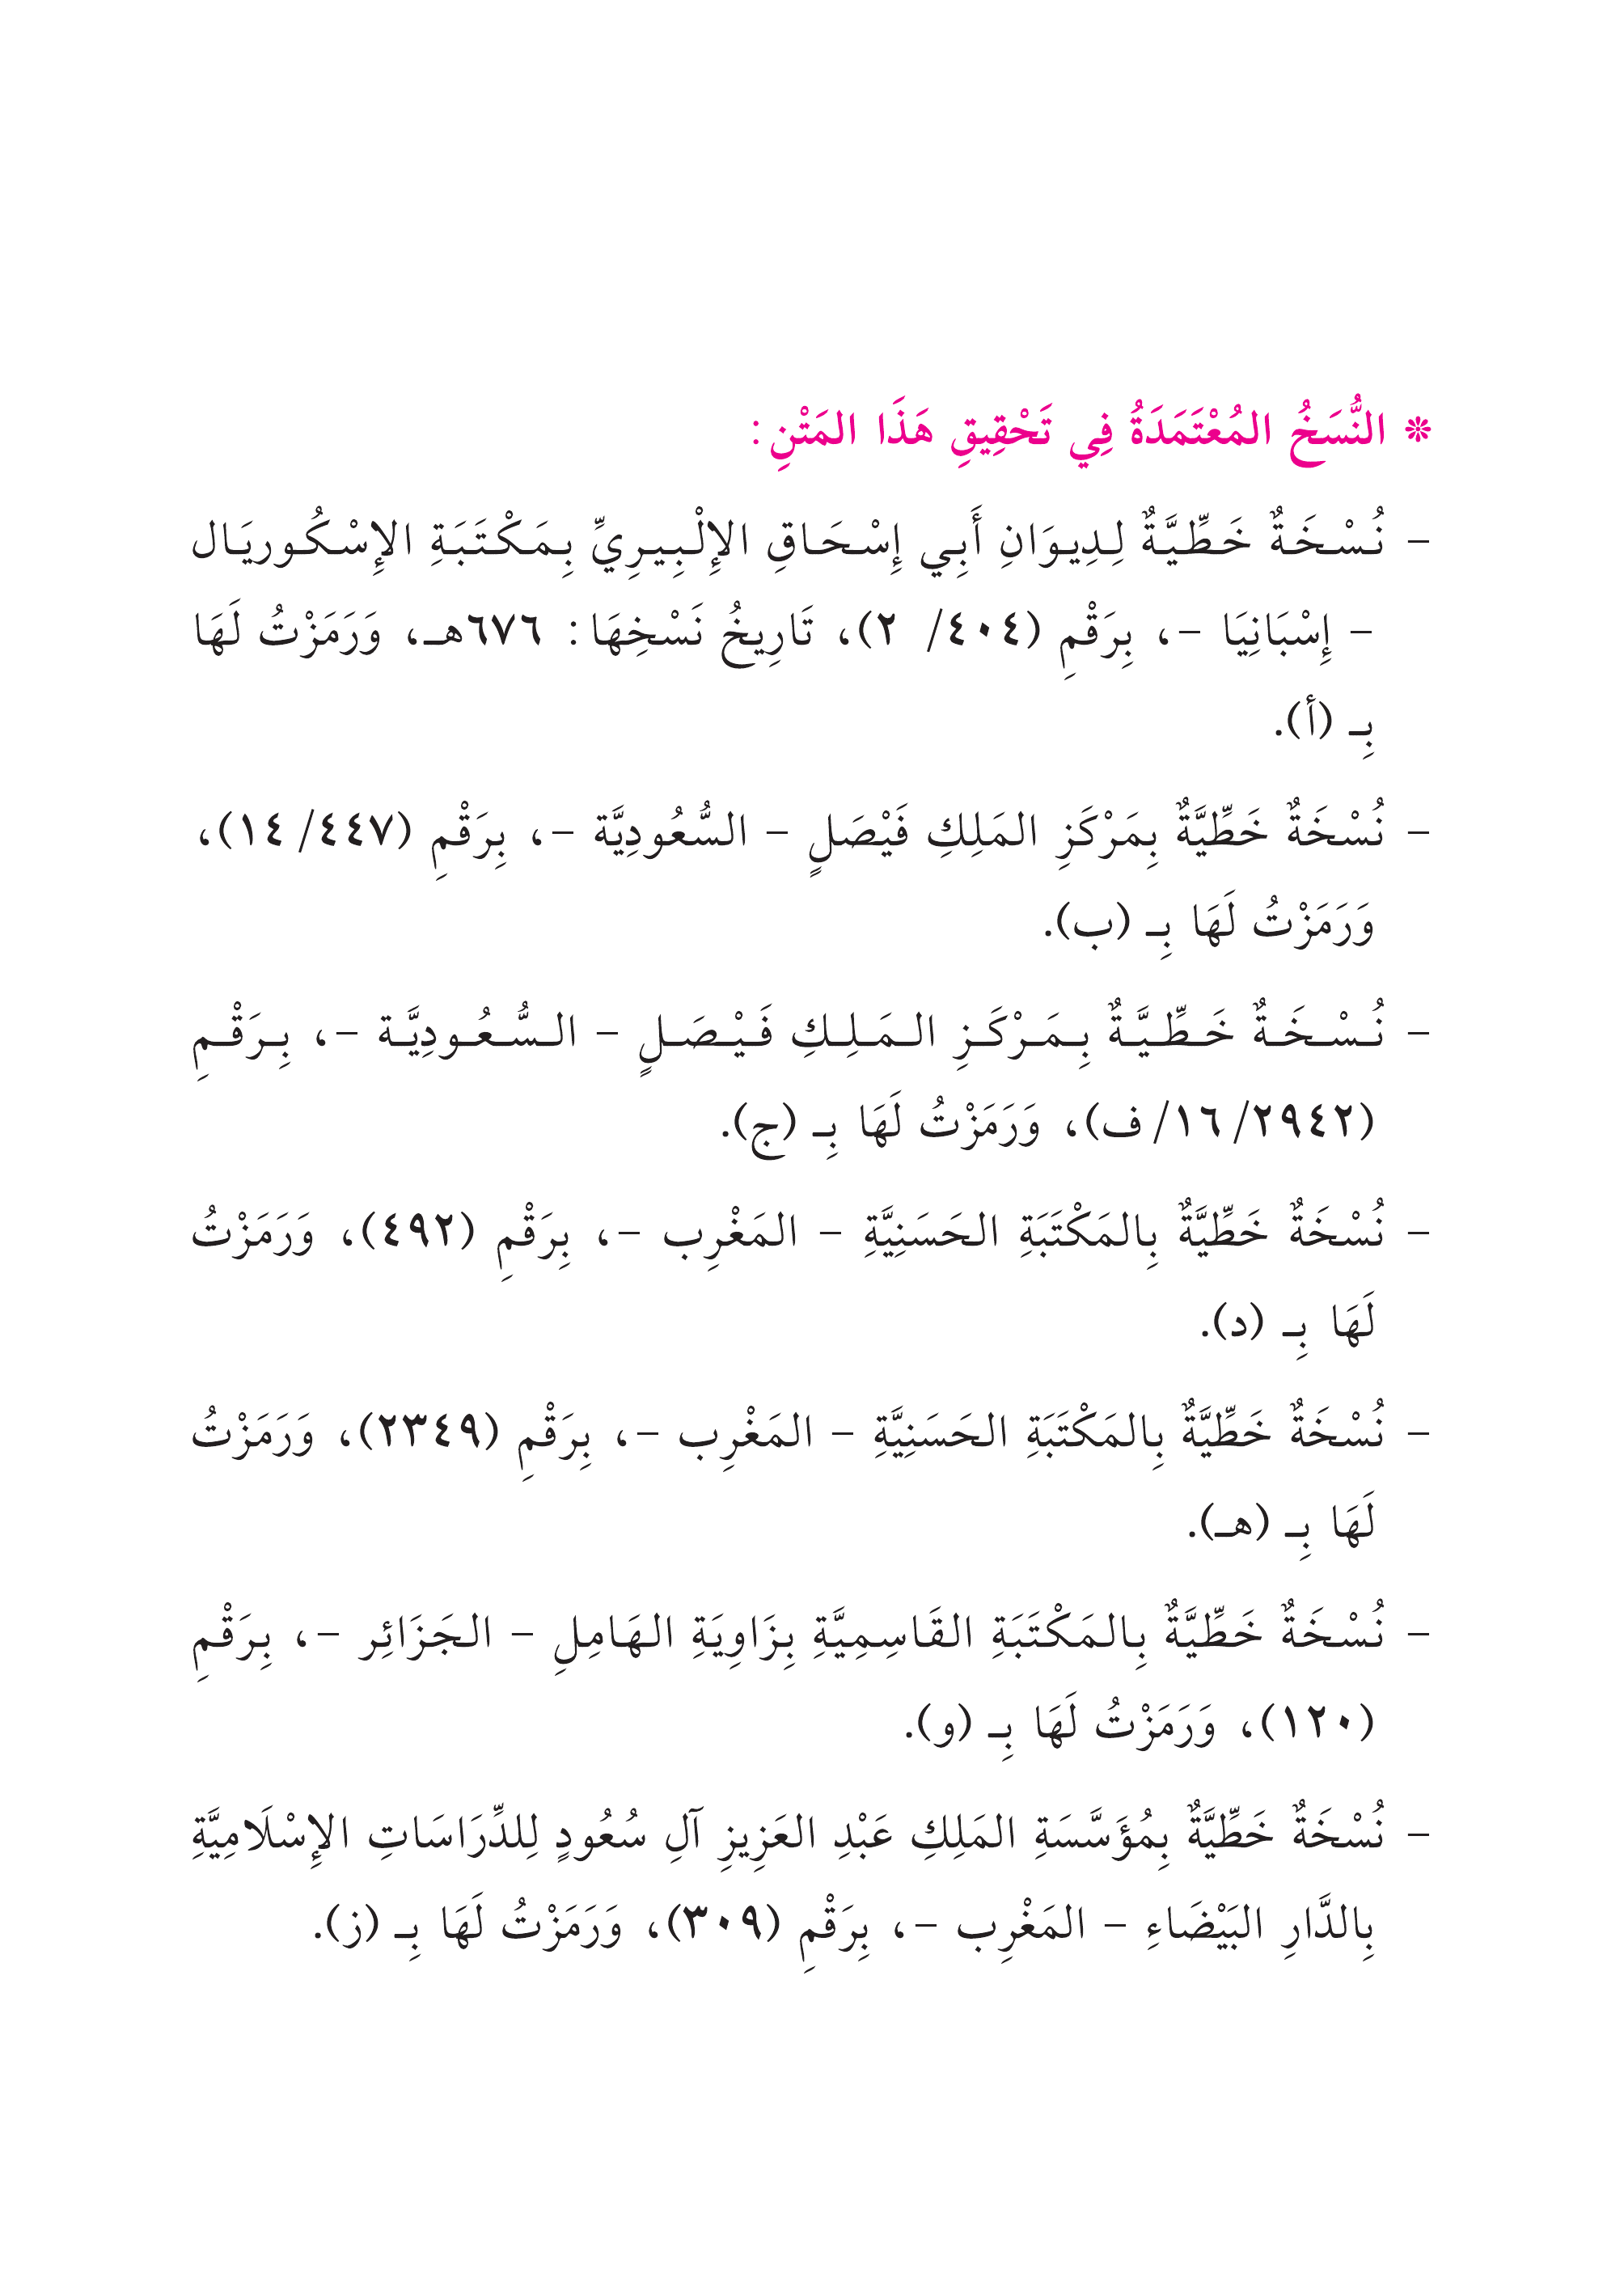 * النُّسَخُ المُعْتَمَدَةُ فِي تَحْقِيقِ هَذَا المَتْنِ:
- نُسْخَةٌ خَطِّيَّةٌ لِدِيوَانِ أَبِي إِسْحَاقِ الإِلْبِيرِيِّ بِمَكْتَبَةِ الإِسْكُوريَال
- إِسْبَانِيَا -، بِرَقْمِ (٤٠٤/ ٢)، تَارِيخُ نَسْخِهَا: ٦٧٦هـ، وَرَمَزْتُ لَهَا
بِـ (أ).
- نُسْخَةٌ خَطِّيَّةٌ بِمَرْكَزِ المَلِكِ فَيْصَلٍ - السُّعُودِيَّة -، بِرَقْمِ (٤٤٧/ ١٤)،
وَرَمَزْتُ لَهَا بِـ (ب).
- نُسْخَةٌ خَطِّيَّةٌ بِمَرْكَزِ المَلِكِ فَيْصَلٍ - السُّعُودِيَّة -، بِرَقْمِ
(٢٩٤٢/ ١٦/ ف)، وَرَمَزْتُ لَهَا بِـ (ج).
- نُسْخَةٌ خَطِّيَّةٌ بِالمَكْتَبَةِ الحَسَنِيَّةِ - المَغْرِب -، بِرَقْمِ (٤٩٢)، وَرَمَزْتُ
لَهَا بِـ (د).
- نُسْخَةٌ خَطِّيَّةٌ بِالمَكْتَبَةِ الحَسَنِيَّةِ - المَغْرِب -، بِرَقْمِ (٢٣٤٩)، وَرَمَزْتُ
لَهَا بِـ (هـ).
- نُسْخَةٌ خَطِّيَّةٌ بِالمَكْتَبَةِ القَاسِمِيَّةِ بِزَاوِيَةِ الهَامِلِ - الجَزَائِر -، بِرَقْمِ
(١٢٠)، وَرَمَزْتُ لَهَا بِـ (و).
- نُسْخَةٌ خَطِّيَّةٌ بِمُؤَسَّسَةِ المَلِكِ عَبْدِ العَزِيزِ آلِ سُعُودٍ لِلدِّرَاسَاتِ الإِسْلَامِيَّةِ
بِالدَّارِ البَيْضَاءِ - المَغْرِب -، بِرَقْمِ (٣٠٩)، وَرَمَزْتُ لَهَا بِـ (ز).